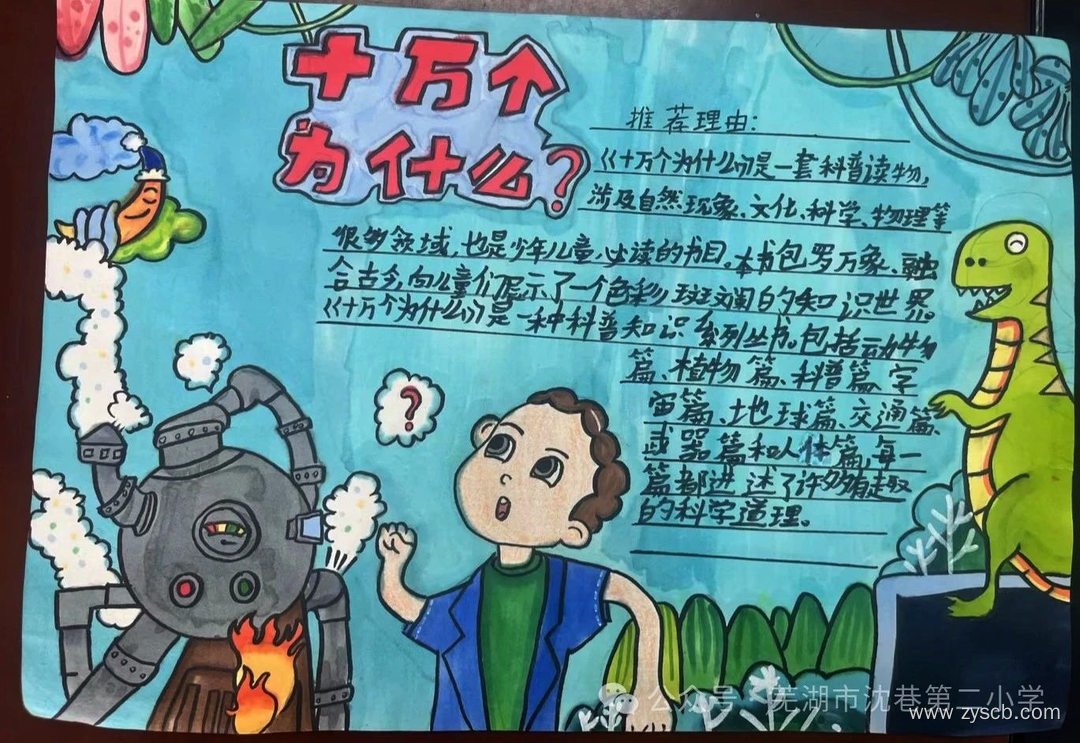 十万个
为什么?
推荐理由:
《十万个为什么》是一套科普读物,
涉及自然现象、文化、科学、物理等
很多领域,也是少年儿童必读的书目。本书包罗万象、融
合古今,向儿童们展示了一个色彩斑斓的知识世界。
《十万个为什么》是一种科普知识系列丛书。包括动物
篇、植物篇、科普篇、宇
宙篇、地球篇、交通篇、
武器篇和人体篇,每一
篇都讲述了许多有趣
的科学道理。
?
公众号·芜湖市沈巷第二小学
www.zyscb.com